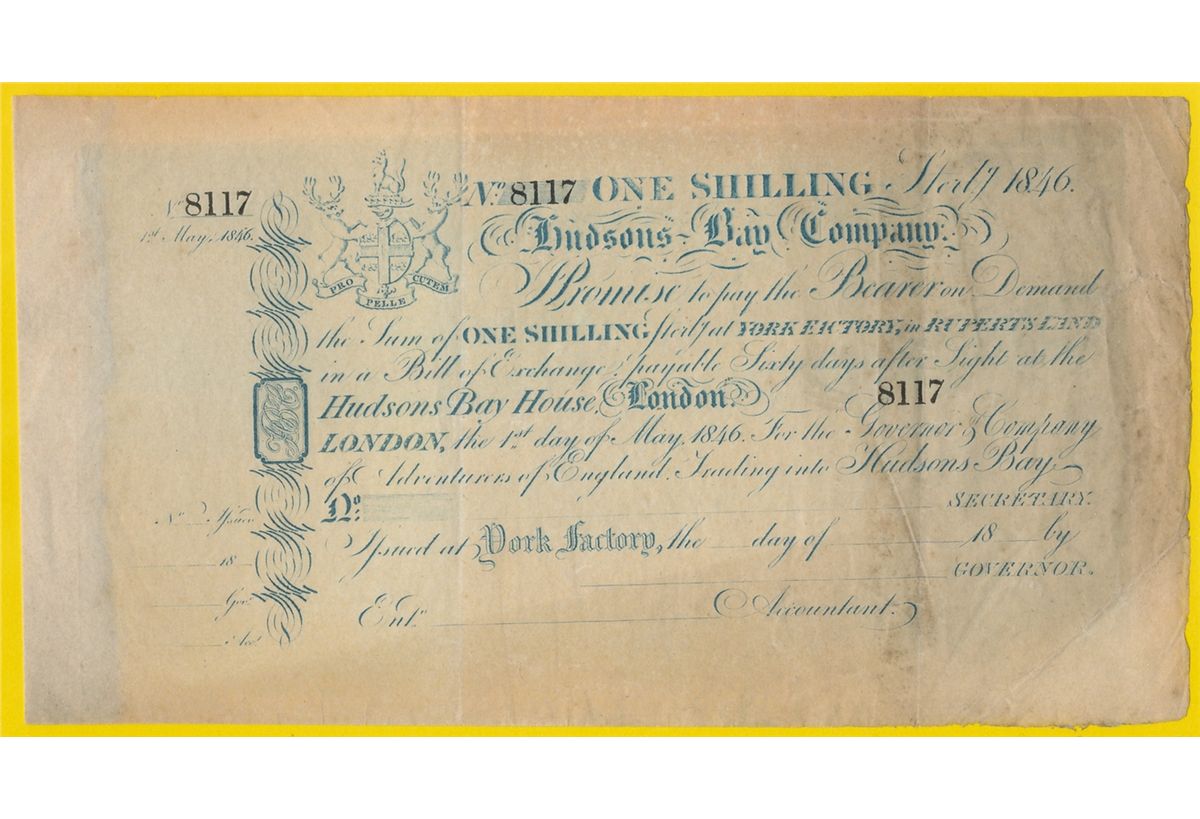 No. 8117
1st May, 1846.
PRO PELLE CUTEM
No. 8117 ONE SHILLING Sterlg 1846.
Hudsons Bay Company.
I Promise to pay the Bearer on Demand
the Sum of ONE SHILLING Sterlg at YORK FACTORY, in RUPERTS LAND
in a Bill of Exchange, payable Sixty days after Sight at the
Hudsons Bay House, London.
8117
LONDON, the 1st day of May, 1846. For the Governor & Company
of Adventurers of England Trading into Hudsons Bay
No.
SECRETARY.
Issued at York Factory, the day of 18 by
GOVERNOR.
Entd. Accountant.
HBC
No. Issued
18
Govr.
Acct.